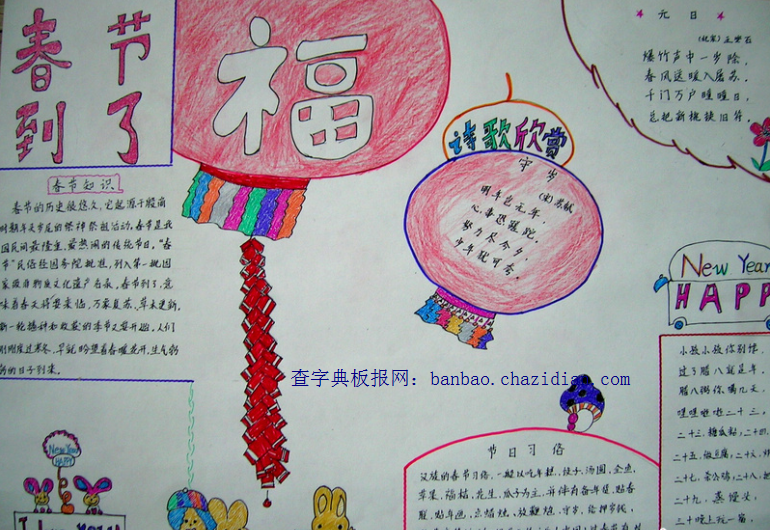 春节
到了
福
春节知识
春节的历史很悠久,它起源于殷商
时期年头岁尾的祭神祭祖活动。春节是我
国民间最隆重、最热闹的传统节日。“春
节”民俗经国务院批准,列入第一批国
家级非物质文化遗产名录。春节到了,意
味着春天将要来临,万象复苏,草木更新,
新一轮播种和收获的季节又要开始。人们
刚刚度过寒冬,早就盼望着春暖花开
的日子到来。
诗歌欣赏
守岁
(宋)苏轼
明年岂无年,
心事恐蹉跎。
努力尽今夕,
少年犹可夸。
元日
王安石
爆竹声中一岁除,
春风送暖入屠苏。
千门万户曈曈日,
总把新桃换旧符。
New Year
HAPP
小孩小孩你别馋,
过了腊八就是年。
腊八粥你喝几天,
哩哩啦啦二十三。
二十三,糖瓜粘;二十四,
二十五,做豆腐;二十六,
二十七,宰公鸡;二十八,
二十九,蒸馒头,
三十晚上玩一宿,
节日习俗
汉族的春节习俗,一般以吃年糕、饺子、汤圆、
苹果、福桔、花生、瓜子为主,并伴有
New Year
HAPPY
查字典板报网:banbao.chazidian.com